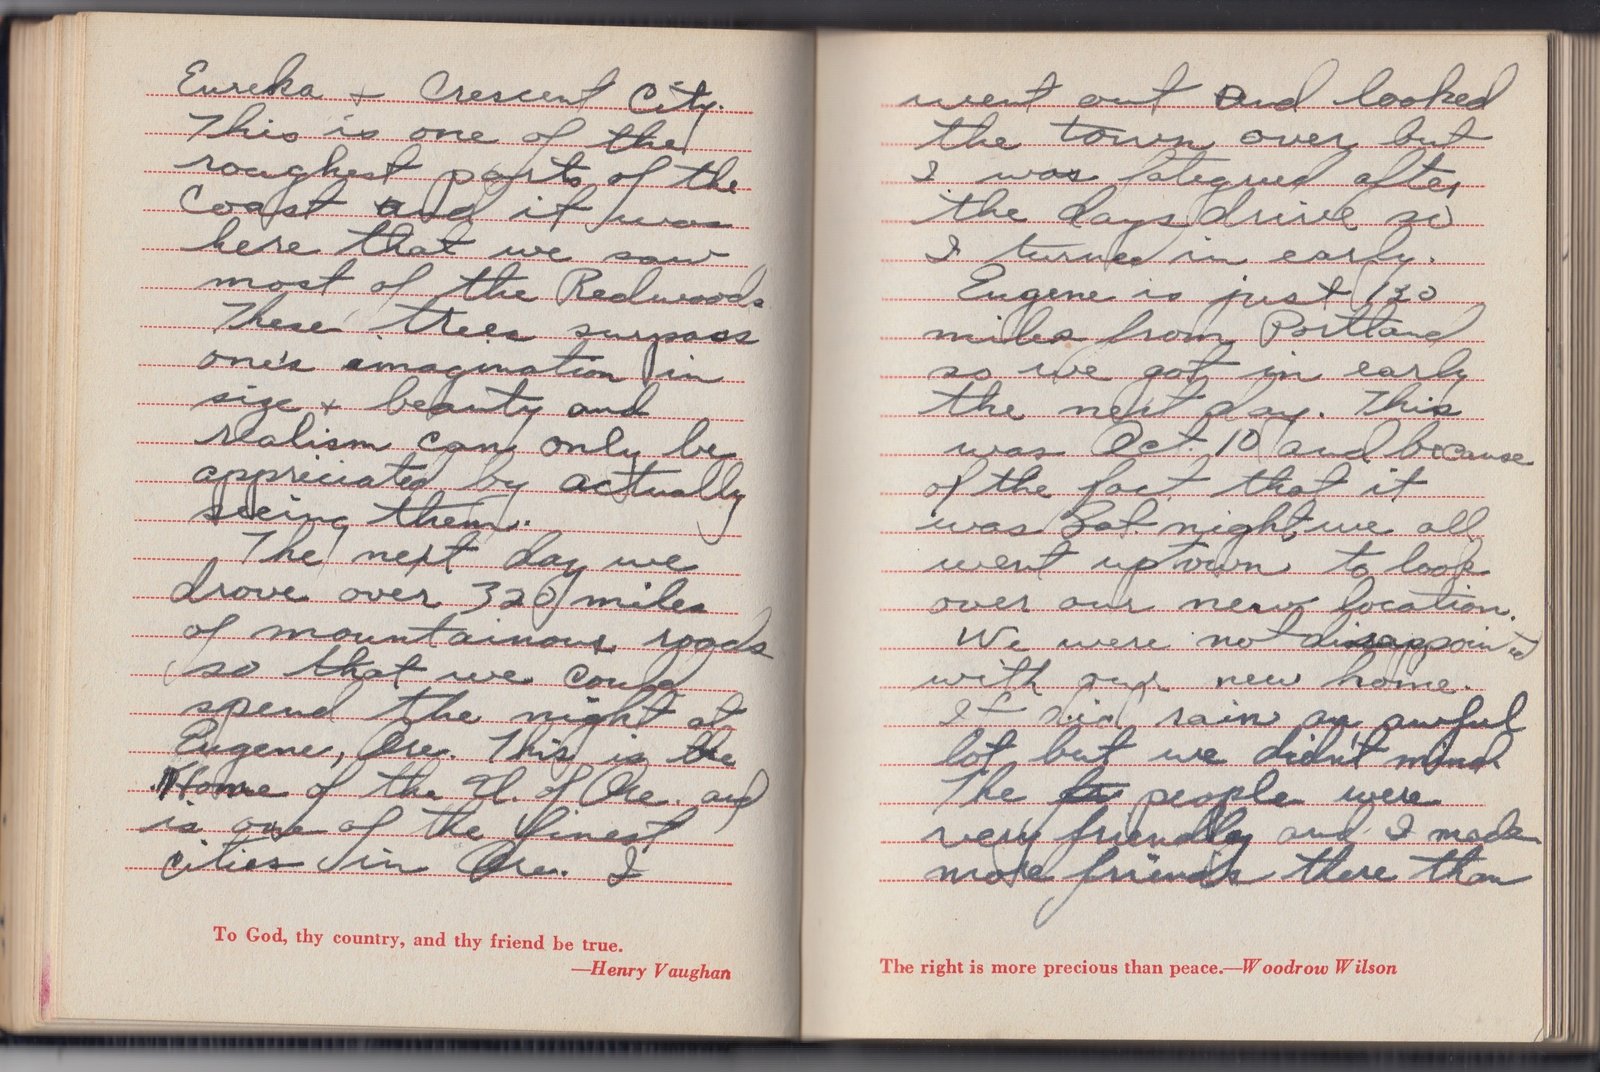 Eureka + Crescent City.
This is one of the
roughest parts of the
Coast and it was
here that we saw
most of the Redwoods
These trees surpass
one's imagination in
size + beauty and
realism can only be
appreciated by actually
seeing them.
The next day we
drove over 320 miles
of mountainous roads
so that we could
spend the night at
Eugene, Ore. This is the
Home of the U. of Ore. and
is one of the finest
cities in Ore. I
To God, thy country, and thy friend be true.
—Henry Vaughan
went out and looked
the town over but
I was fategued after
the days drive so
I turned in early.
Eugene is just 120
miles from Portland
so we got in early
the next day. This
was Oct. 10 and because
of the fact that it
was Sat. night we all
went uptown to look
over our new location.
We were not disappointed
with our new home.
It did rain an awful
lot but we didn't mind.
The people were
very friendly and I made
more friends there than
The right is more precious than peace.—Woodrow Wilson